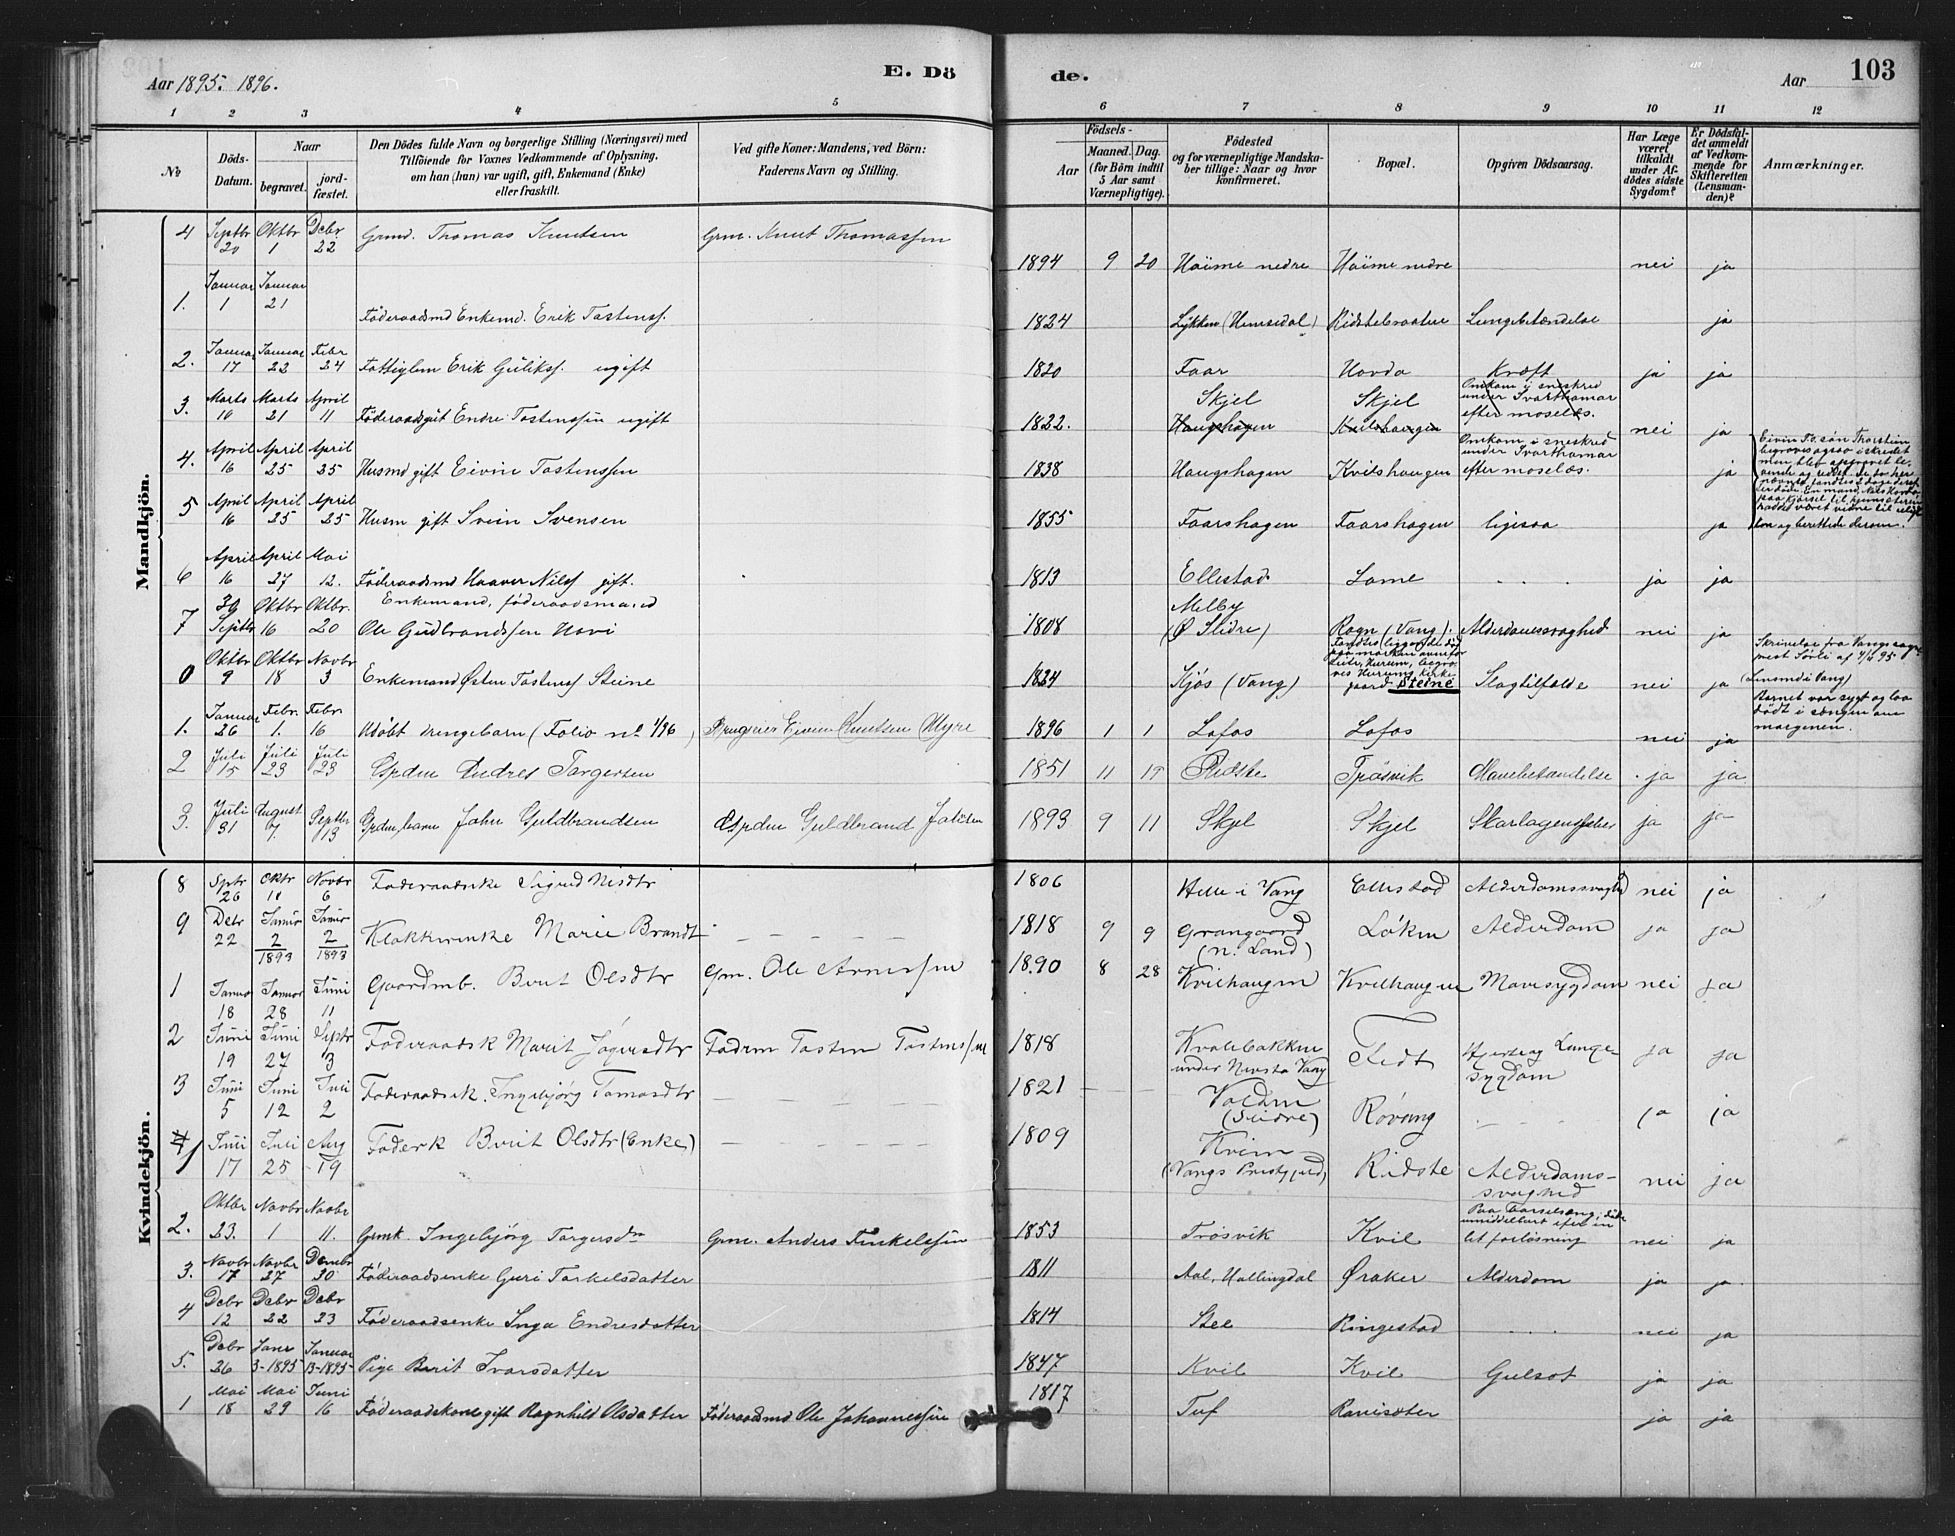 Aar 1895. 1896.
E. Dö
de.
Aar
103
1 2 3 4 5 6 7 8 9 10 11 12
No
Döds-Datum.
Naar
begravet.
jord-fæstet.
Den Dödes fulde Navn og borgerlige Stilling (Næringsvei) med
Tilföiende for Voxnes Vedkommende af Oplysning,
om han (hun) var ugift, gift, Enkemand (Enke)
eller fraskilt.
Ved gifte Koner: Mandens, ved Börn:
Faderens Navn og Stilling.
Födsels-
Aar
Maaned. Dag.
(for Börn indtil
5 Aar samt
Værnepligtige).
Födested
og for værnepligtige Mandska-
ber tillige: Naar og hvor
konfirmeret.
Bopæl.
Opgiven Dödsaarsag.
Har Læge
været
tilkaldt
under Af-
dödes sidste
Sygdom?
Er Dödsfal-
det anmeldt
af Vedkom-
mende for
Skifteretten
(Lensman-
den)?
Anmærkninger.
Mandkjön.
4 Septbr 20 Oktbr 1 Decbr 22 Grmd. Thomas Knutsen Grm. Knut Thomassen 1894 9 20 Høime nedre Høime nedre nei ja
1. Januar 1 Januar 21 Föderaadsmd Enkemd. Erik Tostenss. 1824 Lykken (Hemsedal) Ridstebraaten Lungebetændelse ja
2. Januar 17 Januar 22 Febr 24 Fattiglem Erik Guliks. ugift 1820 Faar Hovda Kræft ja ja
3. Marts 10 Marts 21 April 11 Föderaadsgut Endre Tostenssön ugift 1822. Skjel Haugshagen Skjel Kvilshaugen Omkom i sneskred
under Svarthamar
efter moselæs. nei ja
4. April 16 April 25 April 25 Husmd gift Eivin Tostenssen 1838 Haugshagen Kvilshaugen Omkom i sneskred
under Svarthamar
efter moselæs. ja
Eivin Ts. sön Thorstein
begroves ogsaa i skredet
men blev opgravet le-
vende og reddet. De to her
5 April 16 April 25 April 25 Husm gift Svein Svensen 1855 Faarshagen Faarshagen ligesaa ja
6 April 16 April 27 Mai 12. Föderaadsmd Haaver Nilss gift. 1813 Ellestad Lome . . . . ja ja
7 30 Septbr Oktbr 16 Oktbr. 20 Enkemand, föderaadsmand
Ole Gudbrandssen Hovi 1808 Melby
(Ø Slidre) Rogn (Vang). Alderdomssvaghed nei ja
0 Oktbr 9 Oktbr 18 Novbr 3 Enkemand Østen Tostenss Steine 1824 Kjös (Vang) Steine Slagtilfælde nei ja
(Lensmd i Vang)
1. Januar 26 Febr. 1. Febr 16 Udöbt drengebarn (Folio nº 1/96) Brugeier Eivin Knutsen Myre 1896 1 1 Lofos Lofos nei ja
Barnet var sygt og laa
dödt i sengen om
morgenen.
2 Juli 15 Juli 23 Juli 23 Gprdm Andres Torgersen 1851 11 15 Ridste Trösvik Mavebetændelse ja ja
3. Juli 31 August 7. Septbr 13 Gprdm. barn John Guldbrandsen Gprdm Guldbrand Johnsen 1893 9 11 Skjel Skjel Skarlagensfeber ja ja
Kvindekjön.
8 Sptr 26 Oktr 10 Novbr 6 Föderaadsenke Sigrid Nilsdtr 1806 Helle i Vang Ellestad Alderdomssvaghd nei ja
9 Debr 22 Januar 2/1893 Januar 2/1893 Klokkerenke Marie Brandt – – – – 1818 9 9 Grangaard
(n. Land) Löken Alderdom ja ja
1 Januar 18 Januar 28 Juni 11 Gaardmb. Berit Olsdtr Gm. Ole Arnessen 1890 8 28 Kvilhaugen Kvilhaugen Mavesygdom nei ja
2 Juni 19 Juni 27 Septr 3 Föderaadsk Marit Jögersdtr Fadrm Tosten Tostenssen 1818 Kvalebakken
under Nevsta Vang Fedt Hjerte og Lunge-
sygdom ja ja
3 Juni 5 Juni 12 Juli 2 Föderaadsk. Ingebjörg Tomasdtr – – – – 1821 Volden
(Slidre) Rövang – – – – ja ja
1 Juni 17 Juli 25 Aug 19 Föderk Berit Olsdtr (Enke) – – – – 1809 Kvien
(Vangs Prestegjeld) Ridste Alderdoms-
svaghed nei ja
2. Oktbr 23. Novbr 1 Novbr 11. Grmk. Ingebjörg Torgersd Grm. Anders Finkelssön 1853 Trösvik Kvil Paa barselseng; döde
umiddelbart efter en
let forløsning nei ja
3. Novbr 17 Novbr 27 Dcmbr 30 Föderaadsenke Guri Torkelsdatter 1811 Aal, Hallingdal Øraker Alderdom ja ja
4 Debr 12 Debr 22 Debr 23 Föderaadsenke Inga Endresdatter 1814 Stee Ringestad . . . . nei ja
5. Debr 26 Janr 3-1895 Januar 13-1895 Pige Berit Ivarsdatter 1847 Kvil Kvil Gulsot ja ja
1 Mai 18 Mai 29 Juni 16 Föderaadskone gift Ragnhild Olsdatter Föderaadsmd Ole Johannessön 1817 Tuf Ranisæter ja ja